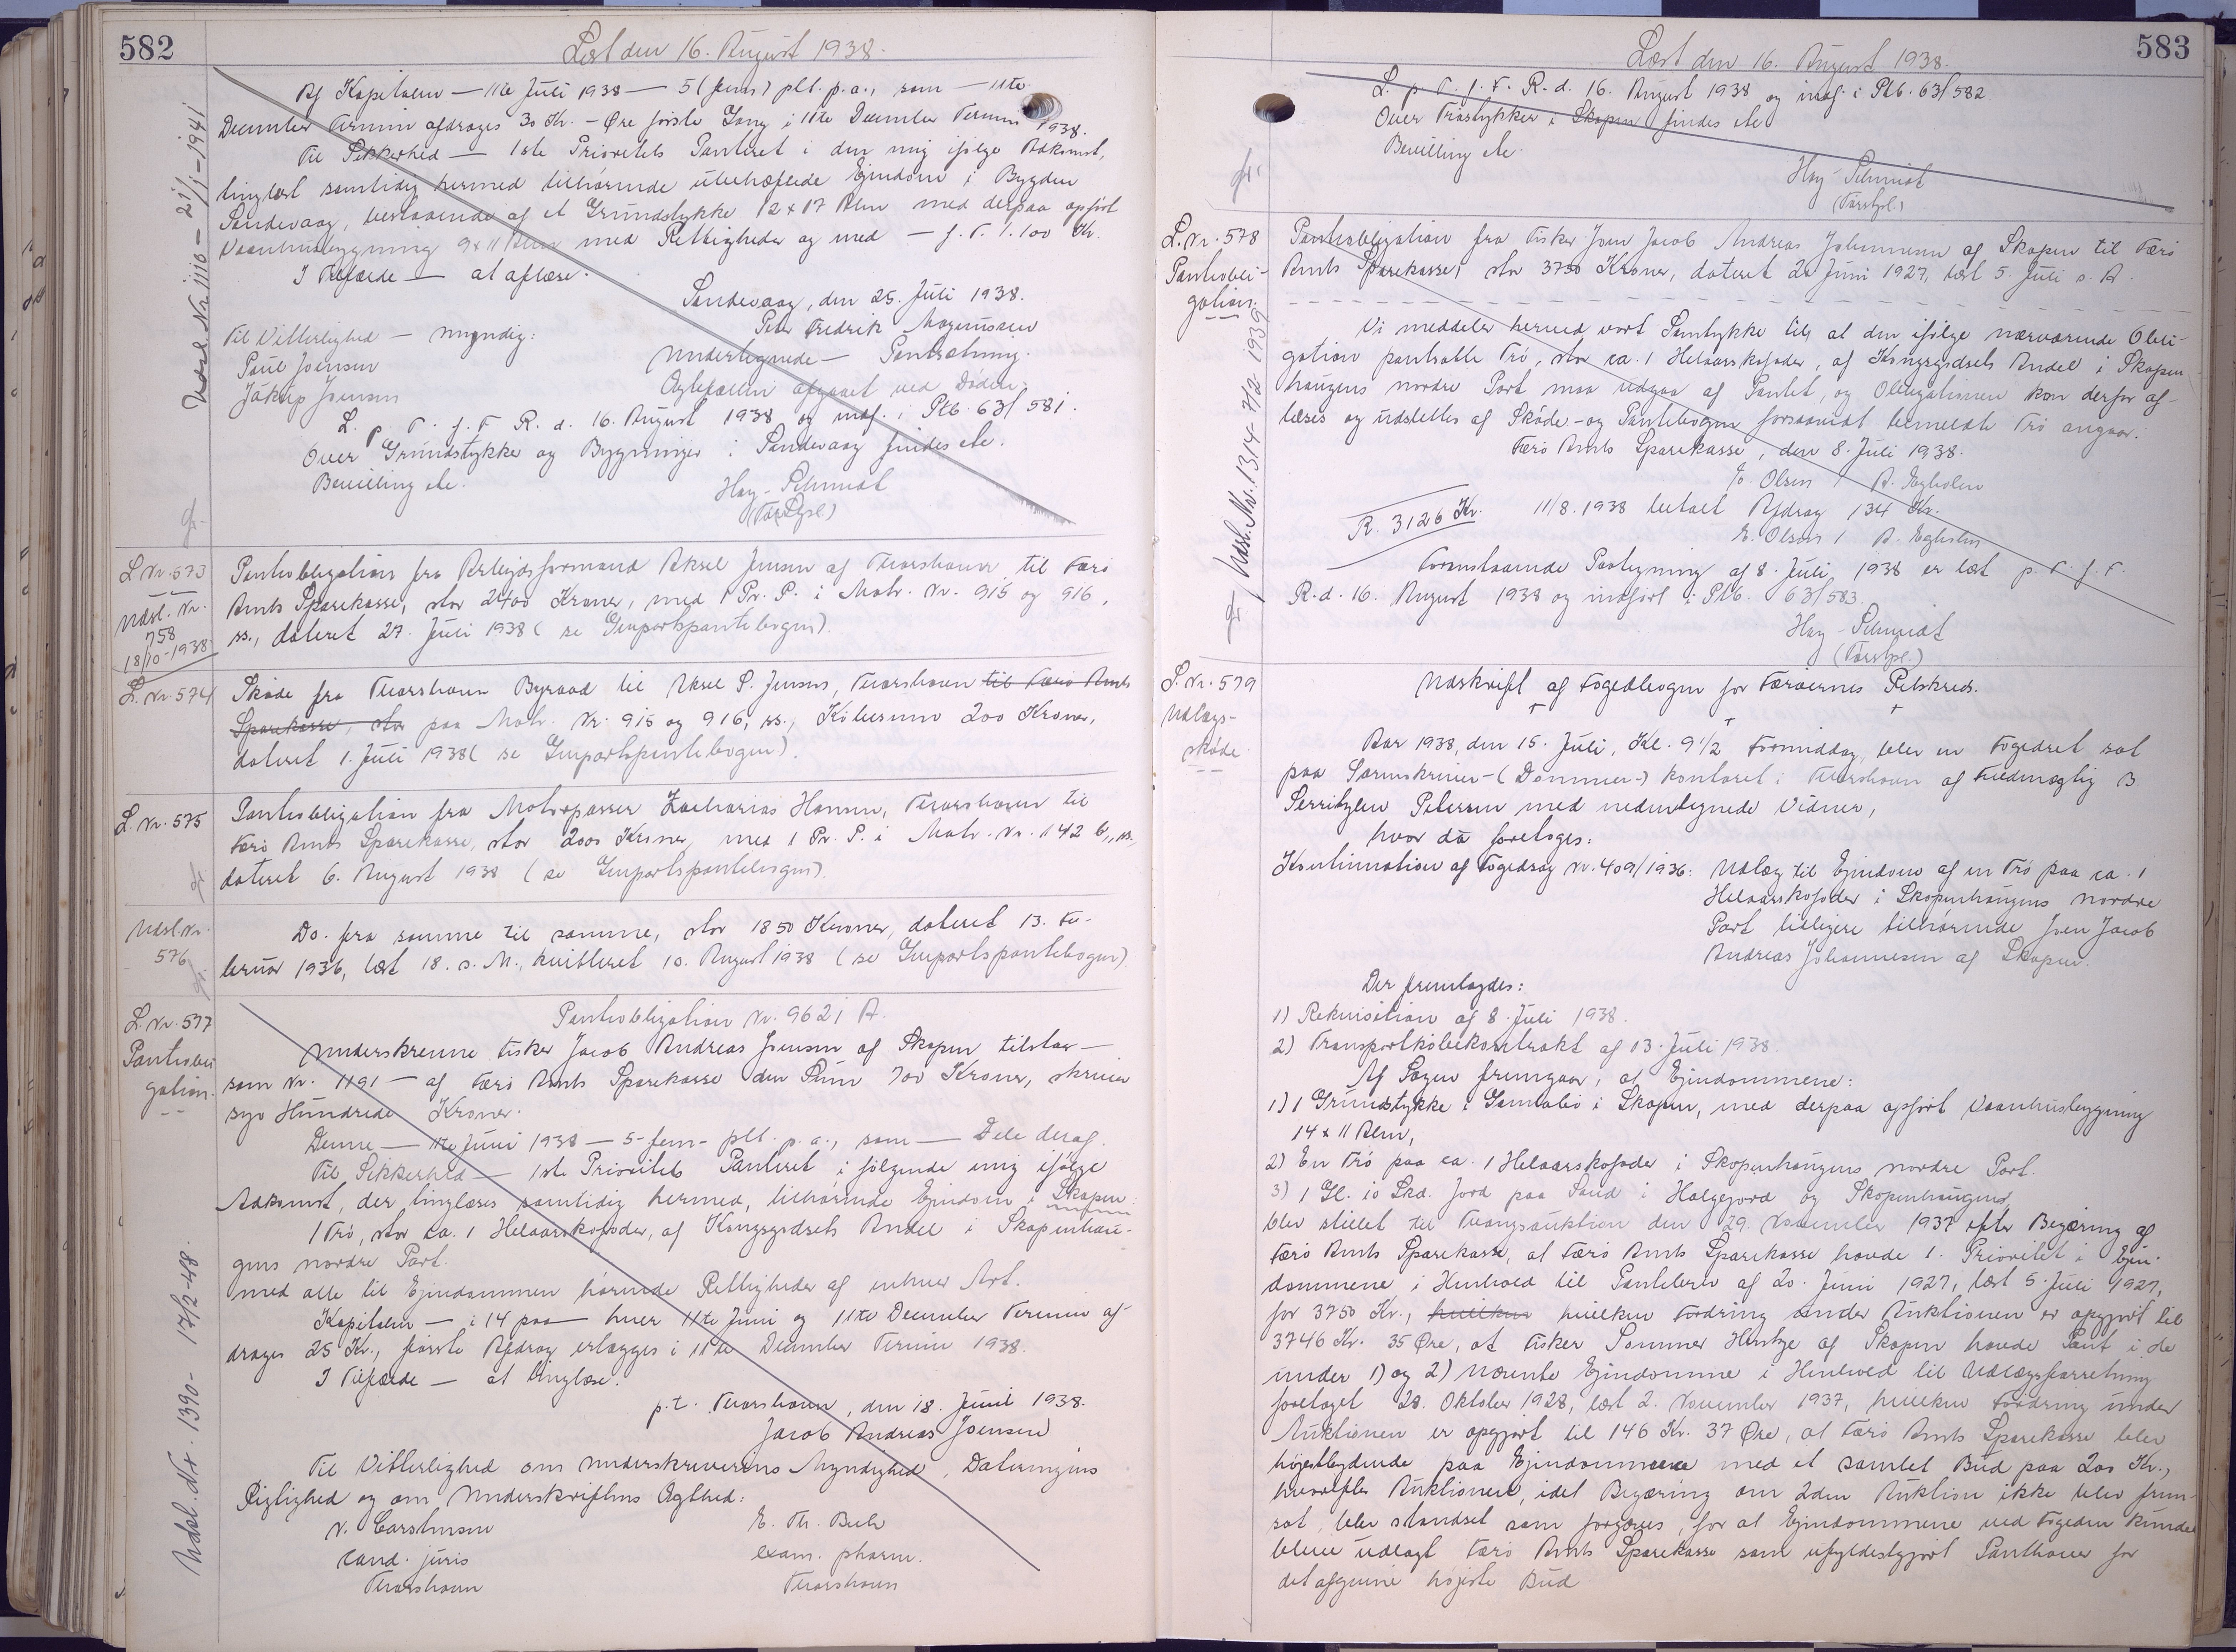 582
Læst den 16. August 1938.
Af Kapitalen — 11te Juli 1938 — 5 (fem) pCt. p.a., som — 11te
December Termin afdrages 30 Kr. - Øre første Gang i 11te December Termin 1938.
Til Sikkerhed — 1ste Prioritets Panteret i den mig ifølge Adkomst,
tinglæst samtidig hermed tilhørende ubehæftede Ejendom i Bygden
Sandevaag, bestaaende af et Grundstykke 12 x 17 Alen med derpaa opført
Vaaningsbygning 9 x 11 Alen med Rettigheder og med — f. T. 1.100 Kr.
I Tilfælde — at aflæse.
Sandevaag, den 25. Juli 1938.
Peter Fredrik Magnussen
Til Vitterlighed — myndig:
Undertegnede — Pantsætning.
Poul Joensen
Ægtefællen afgaaet ved Døden.
Jákup Joensen
L. p. T. f. F. R. d. 16. August 1938 og indf. i Ptb. 63/581.
Over Grundstykker og Bygninger i Sandevaag findes ele.
Bevilling ele.
Hay-Schmidt
(Færøpl.)
Udsl. Nr. 1116 - 21/1-1941
L. Nr. 573
Udsl. Nr.
758
18/10-1938
Pantobligation fra Arbejdsformand Aksel Jensen af Thorshavn til Færø
Amts Sparekasse, stor 2400 Kroner, med 1 Pr. P. i Matr. Nr. 915 og 916,
ss., dateret 27. Juli 1938 (se Genpartspantebogen).
L. Nr. 574
Skøde fra Thorshavn Byraad til Aksel P. Jensen, Thorshavn til Færø Amts
Sparekasse, stor paa Matr. Nr. 915 og 916, ss., Købesum 200 Kroner,
dateret 1. Juli 1938 (se Genpartspantebogen).
L. Nr. 575
Pantobligation fra Motorpasser Zacharias Hansen, Thorshavn til
Færø Amts Sparekasse, stor 2000 Kroner, med 1 Pr. P. i Matr. Nr. 142 b, ss.,
dateret 6. August 1938 (se Genpartspantebogen).
Udsl. Nr.
576
Do. fra samme til samme, stor 1850 Kroner, dateret 13. Fe-
bruar 1936, læst 18. s. M., kvitteret 10. August 1938 (se Genpartspantebogen).
L. Nr. 577
Pantobli
gation.
Pantobligation Nr. 9621 A.
Underskrevne Fisker Jacob Andreas Joensen af Skopun tilstaar —
som Nr. 1191 — af Færø Amts Sparekasse den Sum 700 Kroner, skriver
syv Hundrede Kroner.
Denne — 11te Juni 1938 — 5-fem- pCt. p.a., som — Dele deraf.
Til Sikkerhed — 1ste Prioritets Panteret i følgende mig ifølge
Adkomst, der tinglæses samtidig hermed, tilhørende Ejendom i Skopun:
1 Trø, stor ca. 1 Helaarskofoder, af Kongsgodsets Andel i Skopenhau-
gens nordre Part.
med alle til Ejendommen hørende Rettigheder af enhver Art.
Kapitalen — i 14 paa — hver 11te Juni og 11te December Termin af-
drages 25 Kr., første Afdrag erlægges i 11te December Termin 1938.
I Tilfælde — at tinglæse.
p.t. Thorshavn, den 18. Juni 1938.
Jacob Andreas Joensen
Til Vitterlighed om Underskriverens Myndighed, Dateringens
Rigtighed og om Underskriftens Ægthed:
V. Carstensen
E. Th. Bech
cand. juris
exam. pharm.
Thorshavn
Thorshavn
Udsl. Nr. 1390 - 17/2-48.
583
Læst den 16. August 1938.
L. p. T. f. F. R. d. 16. August 1938 og indf. i Ptb. 63/582
Over Trøstykker i Skopun findes ele
Bevilling ele.
Hay-Schmidt
(Færøpl.)
L. Nr. 578
Pantobli-
gation.
Udsl. Nr. 1314 - 7/2 1939
Pantobligation fra Fisker Joen Jacob Andreas Johannesen af Skopun til Færø
Amts Sparekasse, stor 3750 Kroner, dateret 20 Juni 1927, læst 5. Juli s. A.
Vi meddeler herved vort Samtykke til, at den ifølge nærværende Obli-
gation pantsatte Trø, stor ca. 1 Helaarskofoder, af Kongsgodsets Andel i Skopen
haugens nordre Part maa udgaa af Pantet, og Obligationen kan derfor af-
læses og udslettes af Skøde- og Pantebogen forsaavidt bemeldte Trø angaar.
Færø Amts Sparekasse, den 8. Juli 1938.
E. Olsen / A. Egholm
R. 3126 Kr.
11/8. 1938 betalt Afdrag 134 Kr.
E. Olsen / A. Egholm
Foranstaaende Paategning af 8. Juli 1938 er læst p. T. f. F.
R. d. 16. August 1938 og indført i Ptb. 63/583.
Hay-Schmidt
(Færøpl.)
L. Nr. 579
Udlægs-
skøde.
Udskrift af Fogedbogen for Færøernes Retskreds.
Aar 1938, den 15. Juli, Kl. 9 1/2 Formiddag, blev en Fogedret sat
paa Sorenskriver- (Dommer-) kontoret i Thorshavn af Fuldmægtig B.
Serritzlew Petersen med undertegnede Vidner,
hvor da foretoges:
Kontinuation af Fogedsag Nr. 409/1936: Udlæg til Ejendom af en Trø paa ca. 1
Helaarskofoder i Skopenhaugens nordre
Part tidligere tilhørende Joen Jacob
Andreas Johannesen af Skopun.
Der fremlagdes:
1) Rekvisition af 8. Juli 1938.
2) Transportkøbekontrakt af 13. Juli 1938.
Af Sagen fremgaar, at Ejendommene:
1) 1 Grundstykke i Gamlabø i Skopun, med derpaa opført Vaanhusbygning
14 x 11 Alen,
2) En Trø paa ca. 1 Helaarskofoder i Skopenhaugens nordre Part.
3) 1 Gl. 10 Skd. Jord paa Sand i Holgejord og Skopenhaugens,
blev stillet til Tvangsauktion den 29. November 1937 efter Begæring af
Færø Amts Sparekasse, at Færø Amts Sparekasse havde 1. Prioritet i Ejen-
dommene i Henhold til Pantebrev af 20. Juni 1927, læst 5. Juli 1927,
for 3750 Kr., hvilken hvilken Fordring under Auktionen er opgjort til
3746 Kr. 35 Øre, at Fisker Sommer Hentze af Skopun havde Pant i de
under 1) og 2) nævnte Ejendomme i Henhold til Udlægsforretning
foretaget 28. Oktober 1928, læst 2. November 1937, hvilken Fordring under
Auktionen er opgjort til 146 Kr. 37 Øre, at Færø Amts Sparekasse blev
højestbydende paa Ejendommene med et samlet Bud paa 200 Kr.,
hvorefter Auktionen, idet Begæring om 2den Auktion ikke blev frem-
sat, blev standset som forgæves, for at Ejendommene ved Fogeden kunde
blive udlagt Færø Amts Sparekasse som ufyldestgjort Panthaver for
det afgivne højeste Bud